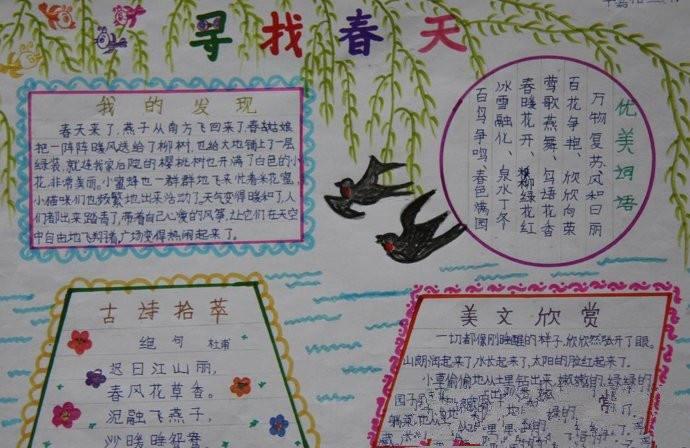 寻找春天
我的发现
春天来了,燕子从南方飞回来了,春姑娘
把一阵阵暖风送给了柳树,也给大地铺上了一层
绿装,就连我家后院的樱桃树也开满了白色的小
花,非常美丽。小蜜蜂也一群群地飞来忙着采花蜜,
小猫咪们也频繁地出来活动了,天气变得暖和了,人
们都出来踏青了,带着自己心爱的风筝,让它们在天空
中自由地飞翔着,广场变得热闹起来了。
优美词语
万物复苏、风和日丽
百花争艳、欣欣向荣
莺歌燕舞、鸟语花香
春暖花开、柳绿花红
冰雪融化、泉水丁冬
百鸟争鸣、春色满园
古诗拾萃
绝句 杜甫
迟日江山丽,
春风花草香。
泥融飞燕子,
沙暖睡鸳
美文欣赏
一切都像刚睡醒的样子,欣欣然张开了眼。
山朗润起来了,水长起来了,太阳的脸红起来了。
小草偷偷地从土里钻出来,嫩嫩的,绿绿的
园子